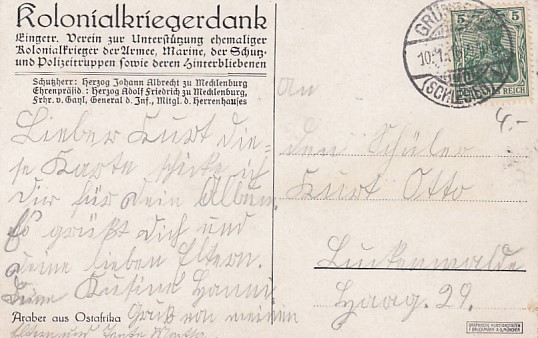 Kolonialkriegerdank
Eingetr. Verein zur Unterstützung ehemaliger
Kolonialkrieger der Armee, Marine, der Schutz-
und Polizeitruppen sowie deren Hinterbliebenen
Schutzherr: Herzog Johann Albrecht zu Mecklenburg
Ehrenpräsid.: Herzog Adolf Friedrich zu Mecklenburg,
Frhr. v. Gayl, General d. Inf., Mitgl. d. Herrenhauses
Lieber Kurt die-
se Karte schicke ich
Dir für Dein Album.
Es grüßt Dich und
deine lieben Eltern.
Deine Kusine Hanni
Gruß von meinen
Eltern und Tante
Araber aus Ostafrika
5 5
REICH
(SCHLESIEN)
4.-
An
den Schüler
Kurt Otto
Luckenwalde
Haag. 29.